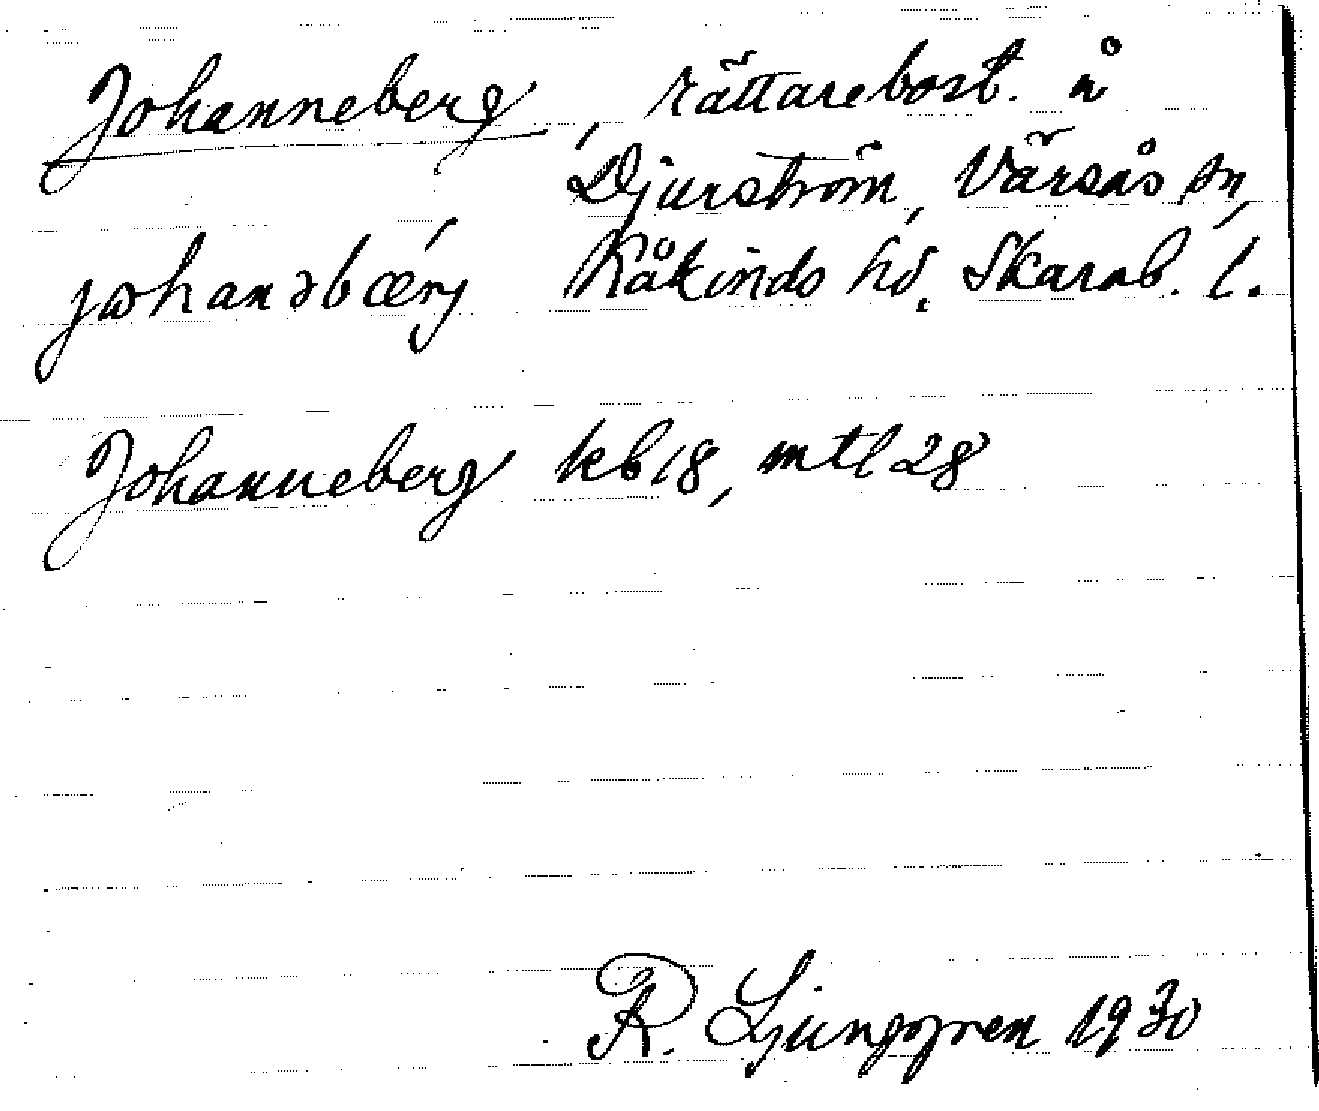 Johanneberg, rättarebost. å
Djurström, Värsås sn,
johanəbærj Kåkinds hd. Skarab. l.
Johanneberg kb 18, mtl 28
R. Ljunggren 1930